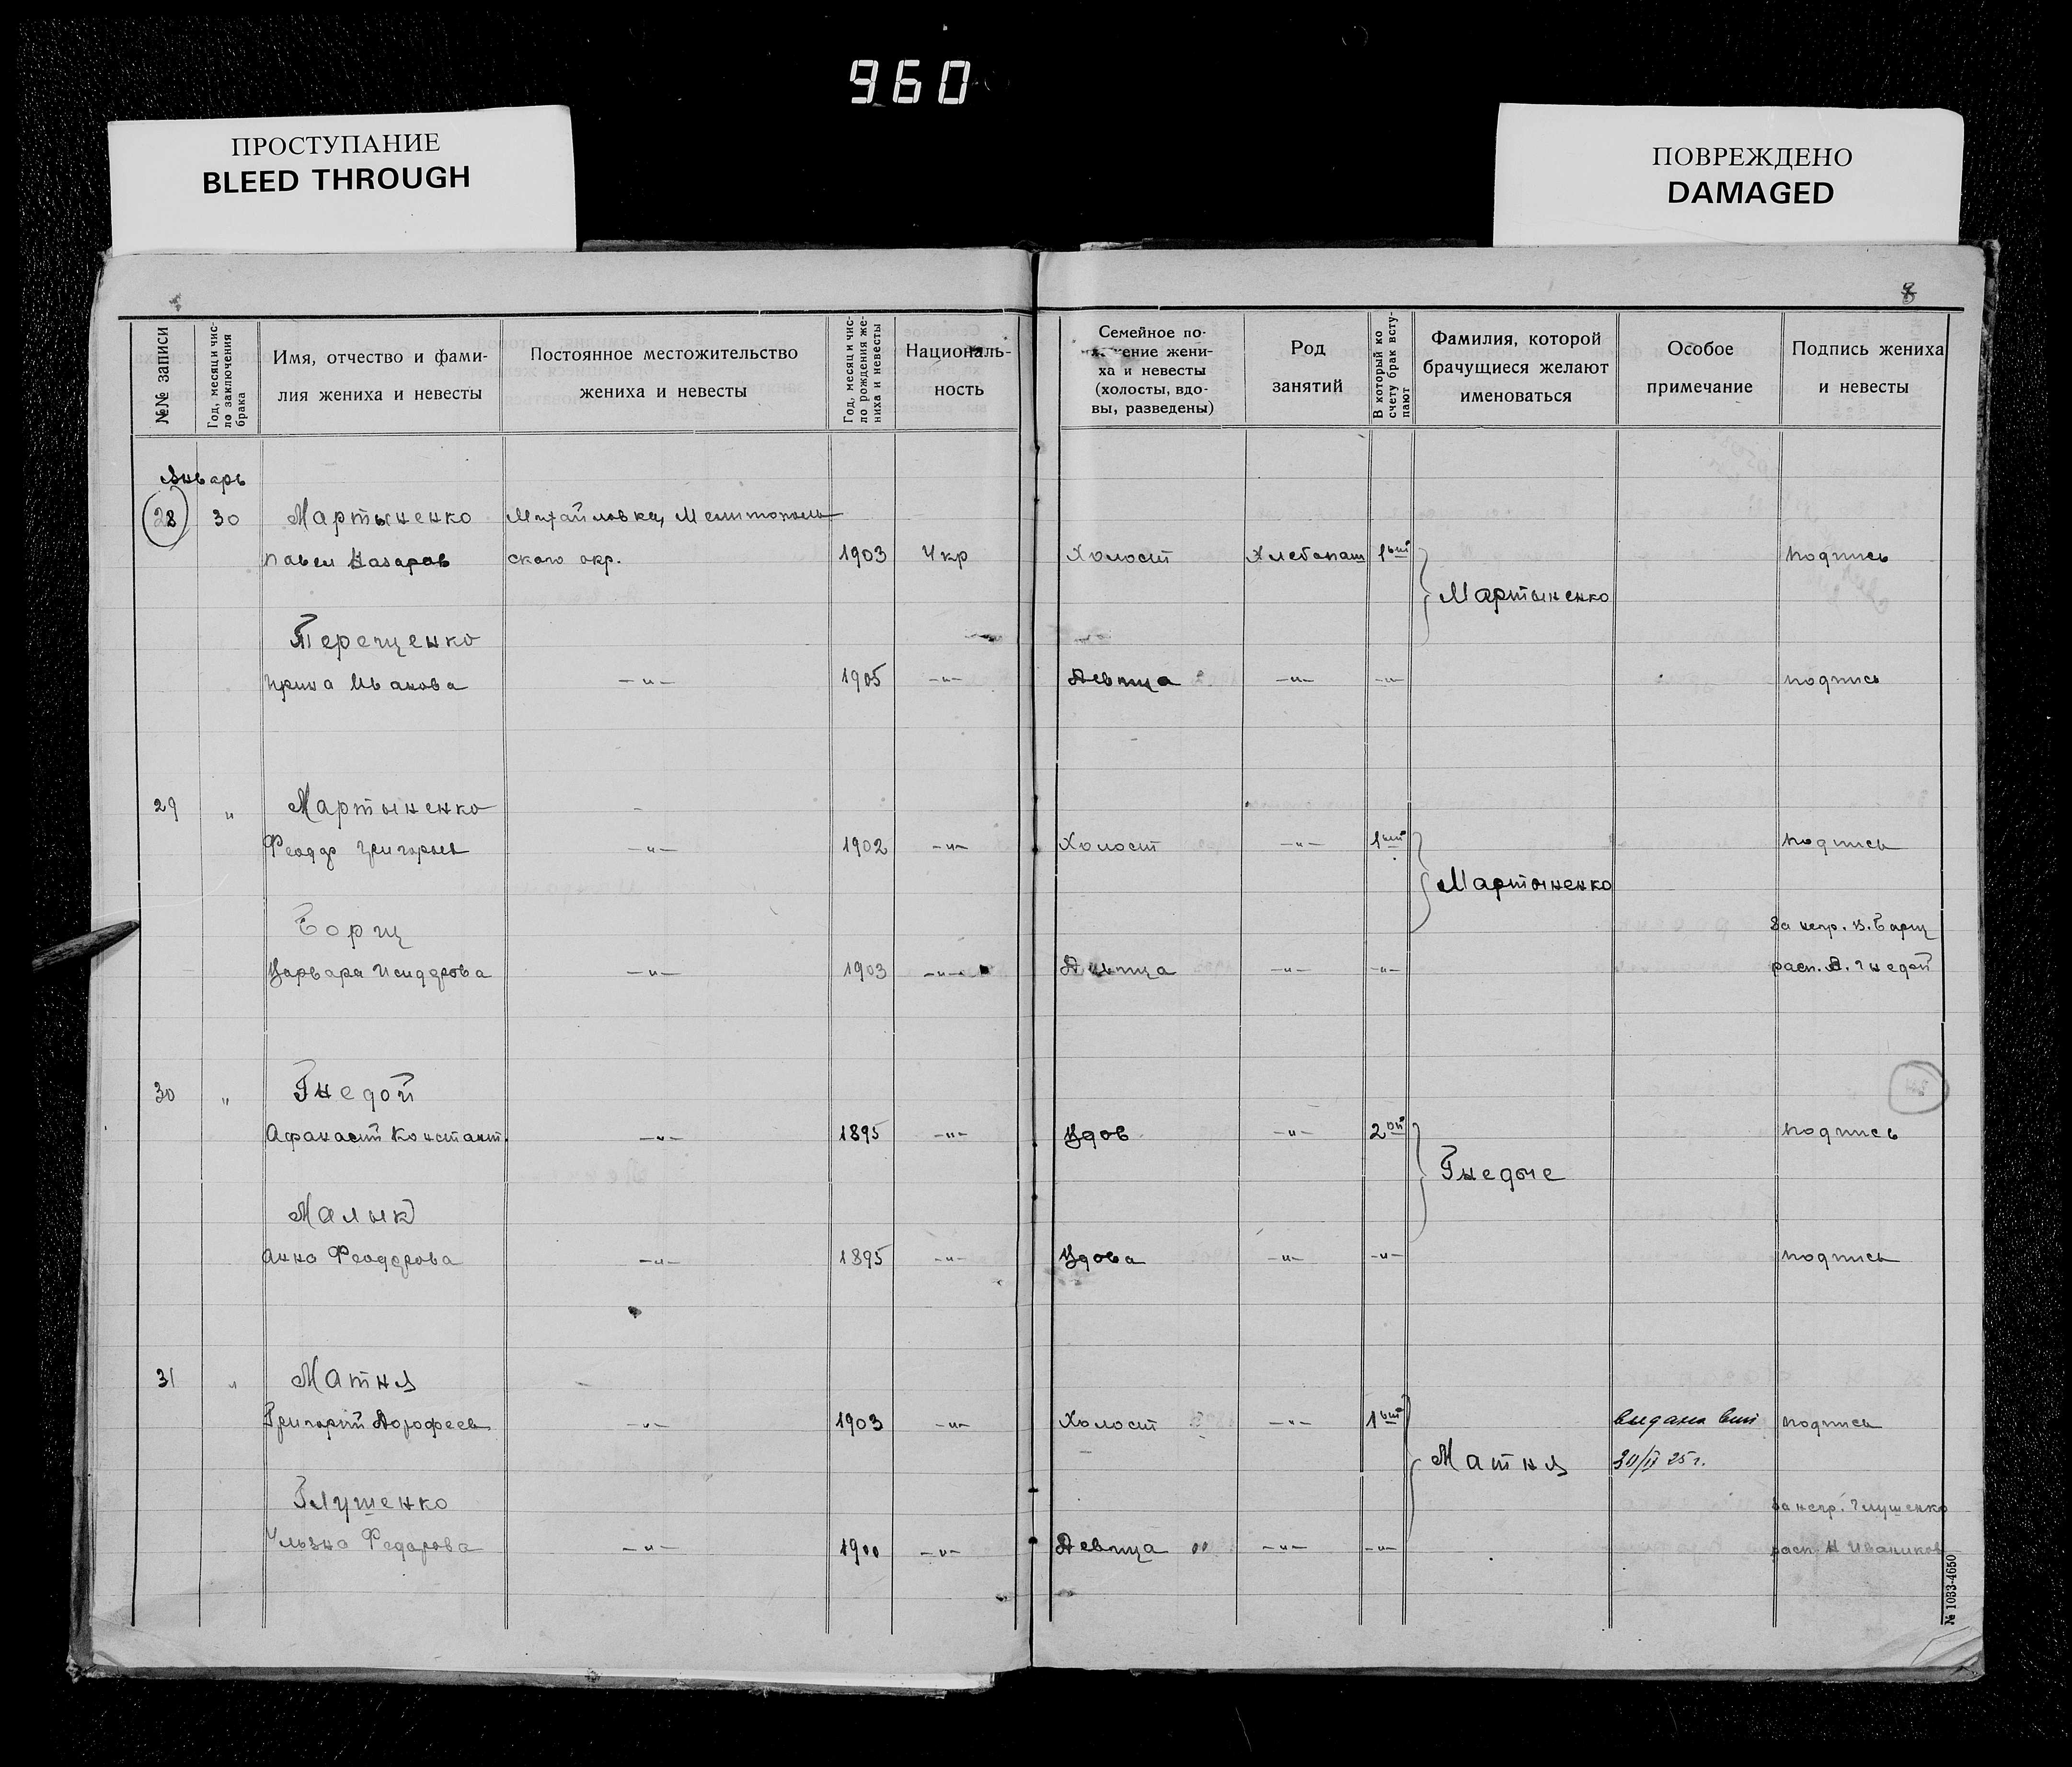 960
ПРОСТУПАНИЕ
BLEED THROUGH
ПОВРЕЖДЕНО
DAMAGED
№№ записи
Год, месяц и чис-
ло заключения
брака
Имя, отчество и фами-
лия жениха и невесты
Постоянное местожительство
жениха и невесты
Год, месяц и чис-
ло рождения же-
ниха и невесты
Националь-
ность
Семейное по-
ение жени-
ха и невесты
(холосты, вдо-
вы, разведены)
Род
занятий
В который ко
счету брак всту-
пают
Фамилия, которой
брачущиеся желают
именоваться
Особое
примечание
Подпись жениха
и невесты
Январь
28 30 Мартыненко Михайловка, Мелитополь
Павел Назаров ского окр. 1903 Укр Холост Хлебопаш 1ый подпись
Мартыненко
Терещенко
Ирина Иванова —"— 1905 —"— Девица —"— —"— подпись
29 " Мартыненко
Феодор Григорьев —"— 1902 —"— Холост —"— 1ый подпись
Мартыненко
Борщ За негр. В. Борщ
Варвара Исидорова —"— 1903 —"— Девица —"— —"— расп. А. Гнедой
30 " Гнедой
Афанасий Констант. —"— 1895 —"— Вдов —"— 2ой подпись
Гнедые
Малык
Анна Феодорова —"— 1895 —"— Вдова —"— —"— подпись
31 " Матня
Григорий Дорофеев —"— 1903 —"— Холост —"— 1ый выдана подпись
Матня 25 г.
Глушенко За негр. Глушенко
Ульяна Федорова —"— 1900 —"— Девица —"— —"— расп. Н Иваников
№ 1033-4650